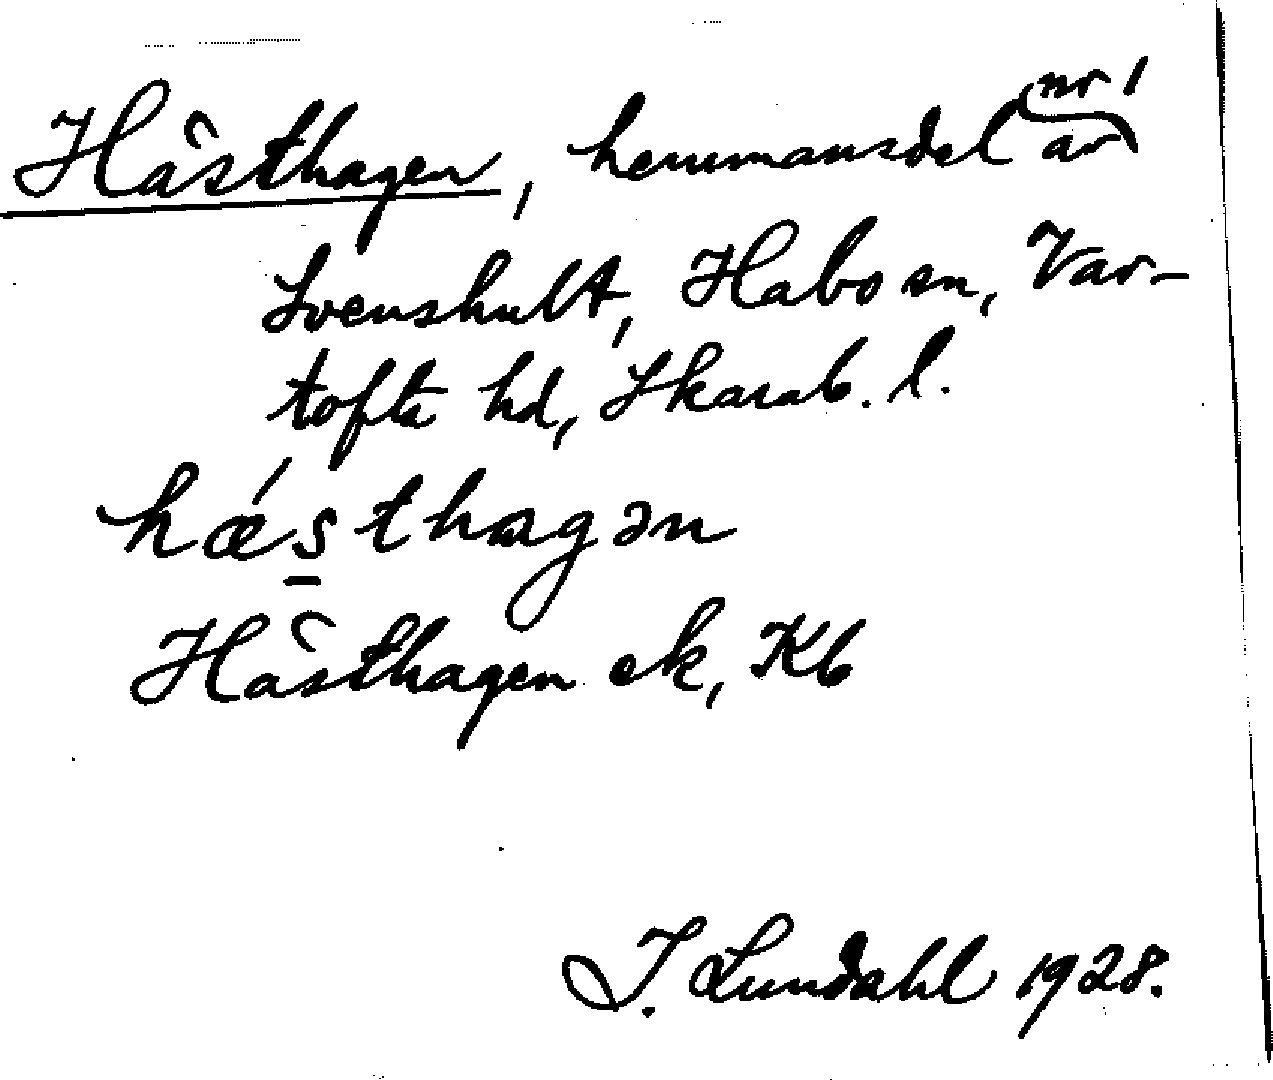 Hästhagen, hemmansdel av nr 1
Svenshult, Habo sn, Var-
tofta hd, Skarab. l.
hǽs̠thagən
Hästhagen ek, Kb
I. Lundahl 1928.